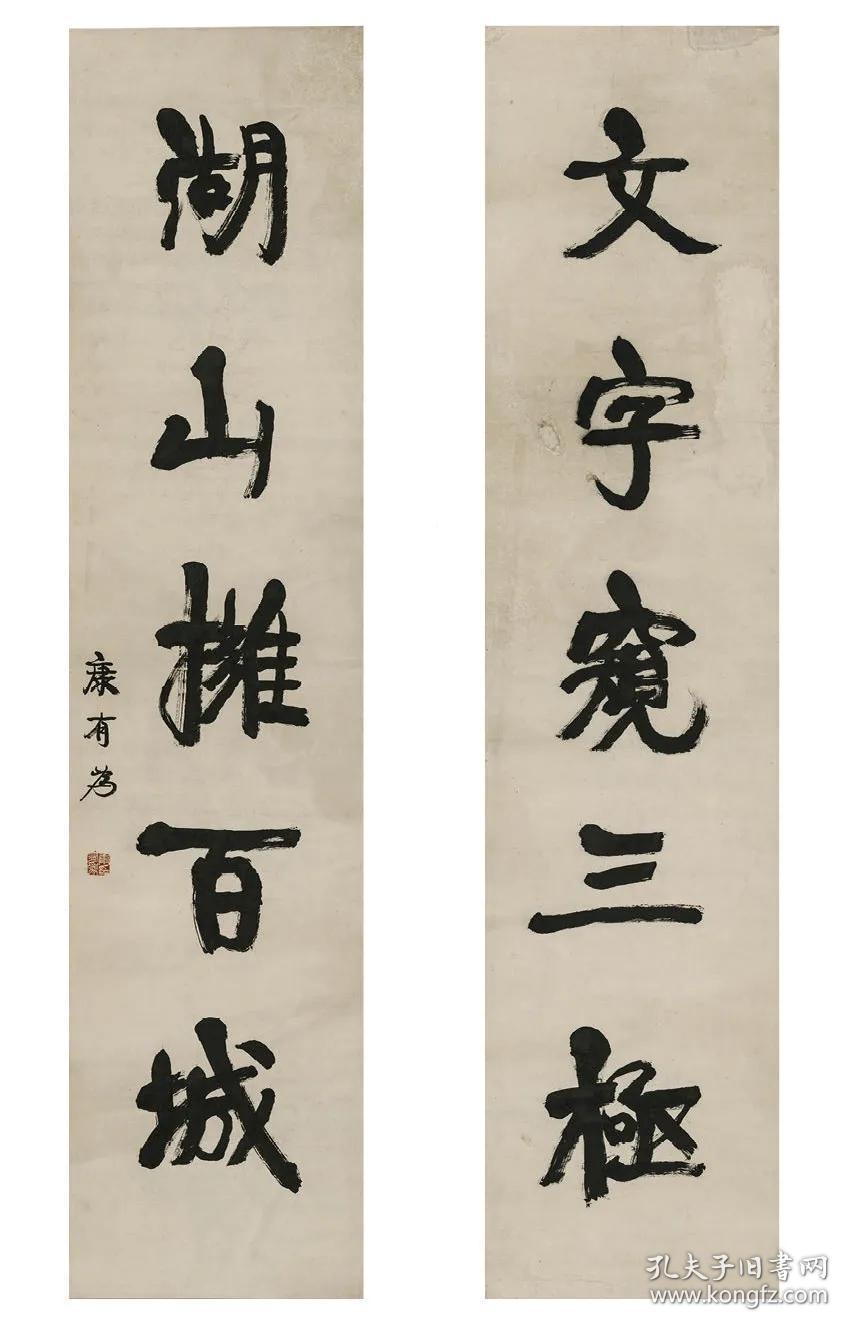 文字窺三極
湖山擁百城
康有為
孔夫子旧书网
www.kongfz.com